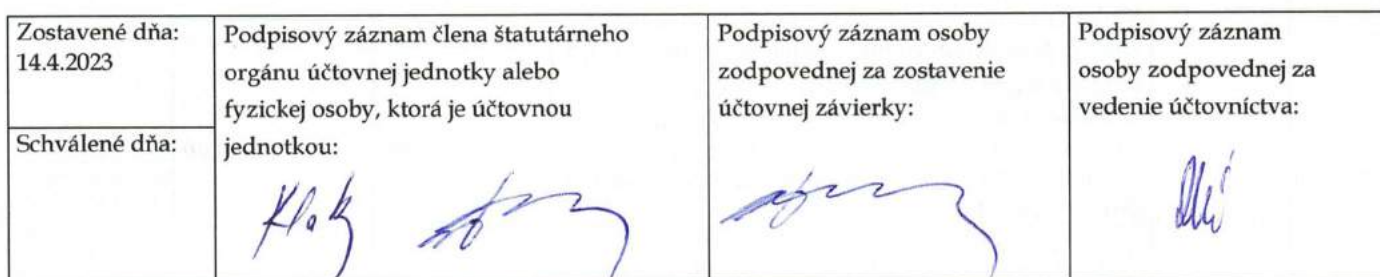 Zostavené dňa:
14.4.2023
Schválené dňa:
Podpisový záznam člena štatutárneho
orgánu účtovnej jednotky alebo
fyzickej osoby, ktorá je účtovnou
jednotkou:
Podpisový záznam osoby
zodpovednej za zostavenie
účtovnej závierky:
Podpisový záznam
osoby zodpovednej za
vedenie účtovníctva: